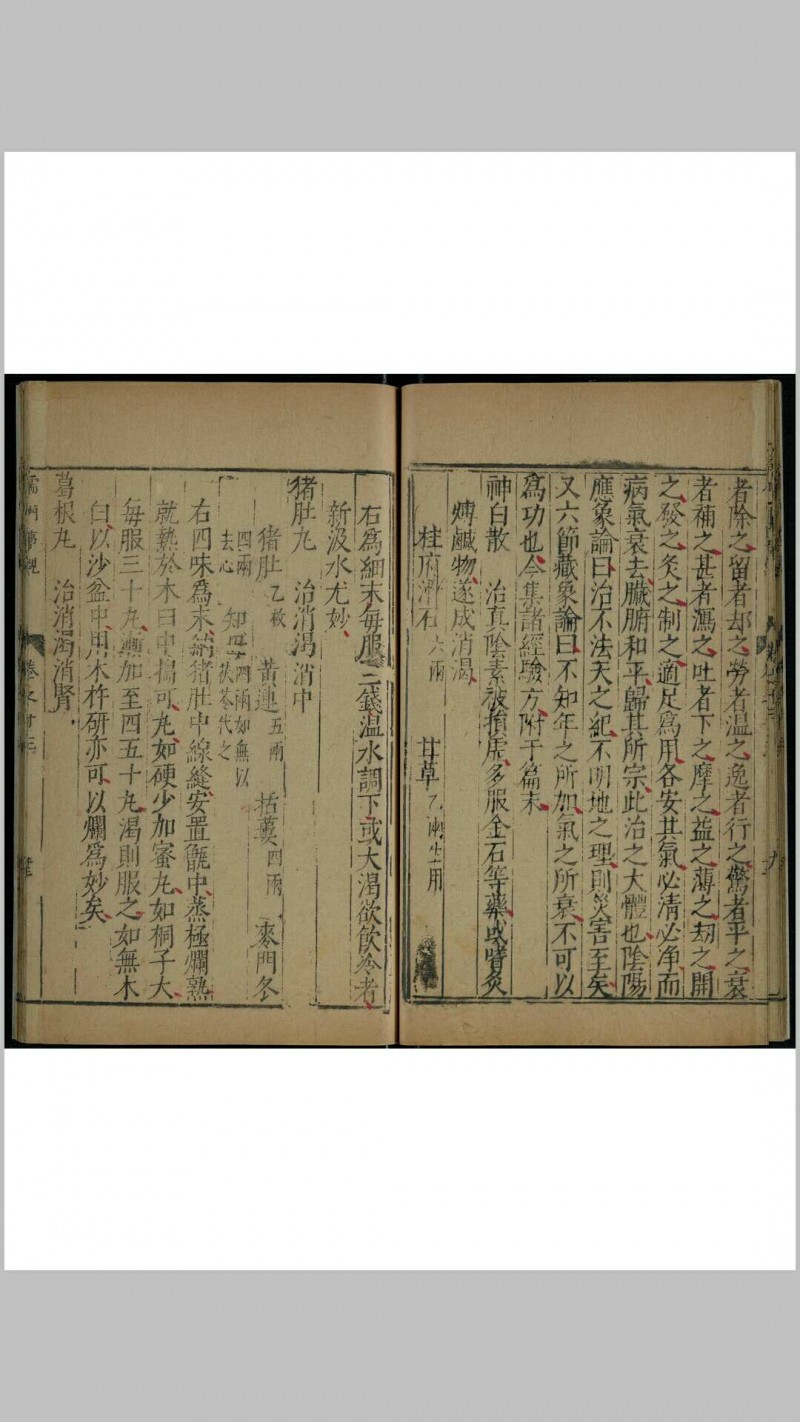 者除之留者却之勞者温之逸者行之驚者平之衰
者補之甚者瀉之吐者下之摩之益之薄之刼之開
之發之灸之制之適足爲用各安其氣必清必净而
病氣衰去臟腑和平歸其所宗此治之大體也陰陽
應象論曰治不法天之紀不明地之理則災害至矣
又六節藏象論曰不知年之所加氣之所衰不可以
爲功也今集諸經驗方附于篇末
神白散 治真陰素被損虚多服金石等藥或嗜炙
煿鹹物遂成消渴
桂府滑石六兩 甘草乙兩生用
右爲細末每服三錢温水調下或大渴欲飲冷者
新汲水尤妙
猪肚丸 治消渴消中
猪肚乙枚 黄連五兩 栝蔞四兩 麥門冬
四兩去心 知母四兩如無以茯苓代之
右四味爲末納猪肚中線縫安置甑中蒸極爛熟
就熱於木臼中搗可丸如硬少加蜜丸如桐子大
每服三十丸漸加至四五十丸渴則服之如無木
臼以沙盆中用木杵研亦可以爛爲妙矣
葛根丸 治消渴消腎
儒門事親 卷之十三